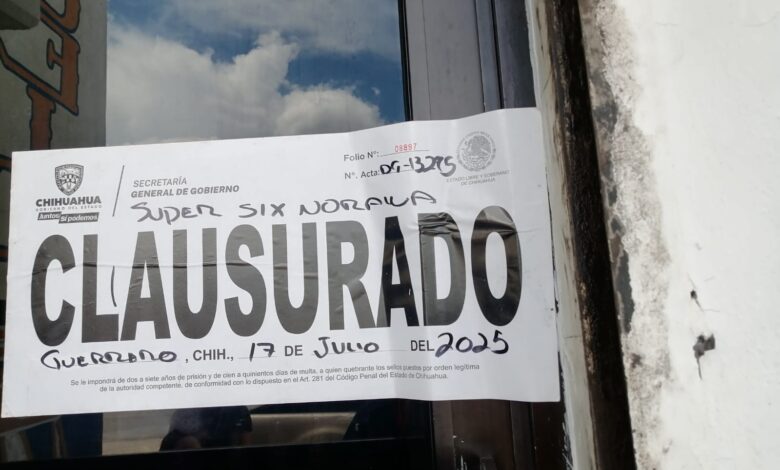 Folio N°: 09897
N°. Acta: DG-13295
CHIHUAHUA
GOBIERNO DEL ESTADO
Juntos Sí podemos
SECRETARÍA
GENERAL DE GOBIERNO
ESTADO LIBRE Y SOBERANO
DE CHIHUAHUA
SUPER SIX NORAWA
CLAUSURADO
GUERRERO, CHIH., 17 DE JULIO DEL 2025
Se le impondrá de dos a siete años de prisión y de cien a quinientos días de multa, a quien quebrante los sellos puestos por orden legítima
de la autoridad competente, de conformidad con lo dispuesto en el Art. 281 del Código Penal del Estado de Chihuahua.